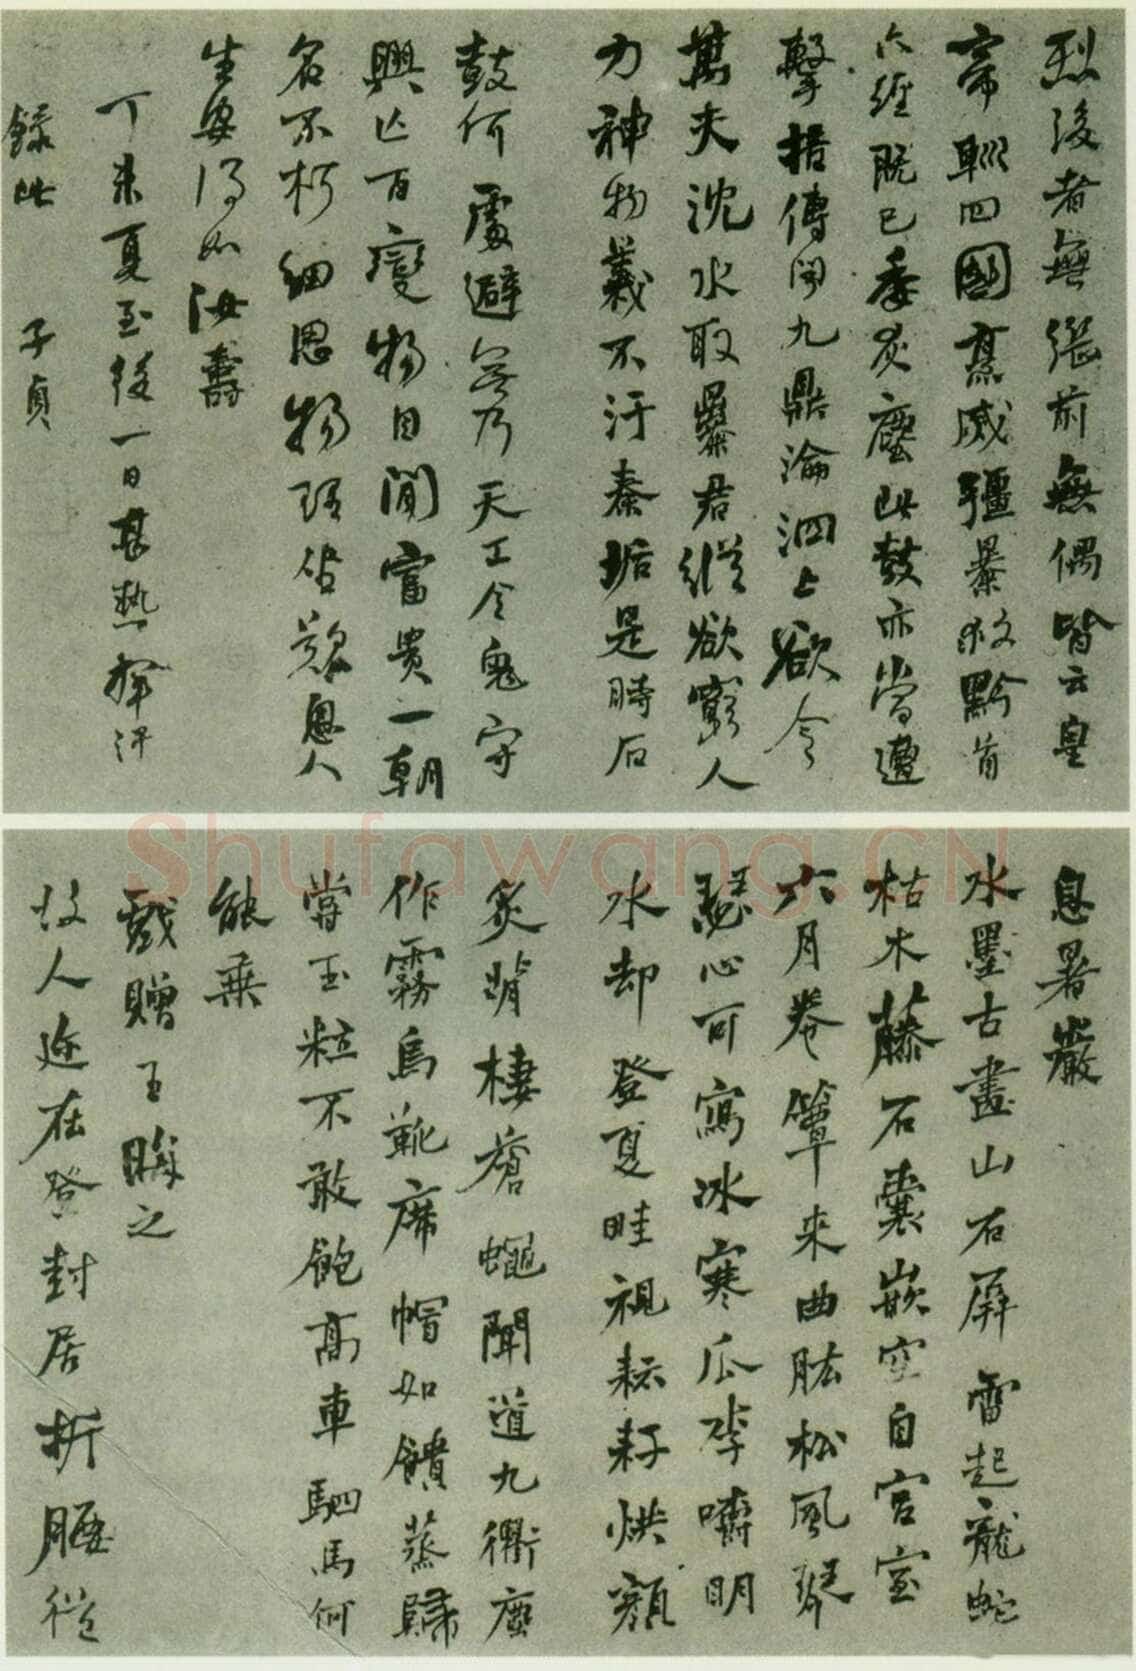 烈後者無繼前無偶皆云皇
帝聯四國烹滅彊暴救黔首
六經既已委灰塵此鼓亦當遭
擊掊傳聞九鼎淪泗上欲令
萬夫沈水取暴君縱欲窮人
力神物義不汙秦垢是時石
鼓何處避無乃天工令鬼守
興亡百變物自閒富貴一朝
名不朽細思物理坐歎息人
生安得如汝壽
丁未夏至後一日甚熱揮汗
錄此 子貞
息暑巖
水墨古畫山石屏雷起龍蛇
枯木藤石囊嵌空自宮室
六月卷簟來曲肱松風琴
瑟心可寫冰寒瓜李嚼明
水却登夏畦視耘耔烘顏
炙背棲蒼蠅聞道九衢塵
作霧烏靴席帽如饙蒸歸
嘗玉粒不敢飽高車駟馬何
能乘
戲贈王晦之
故人近在登封居折腰從
Shufawang.CN